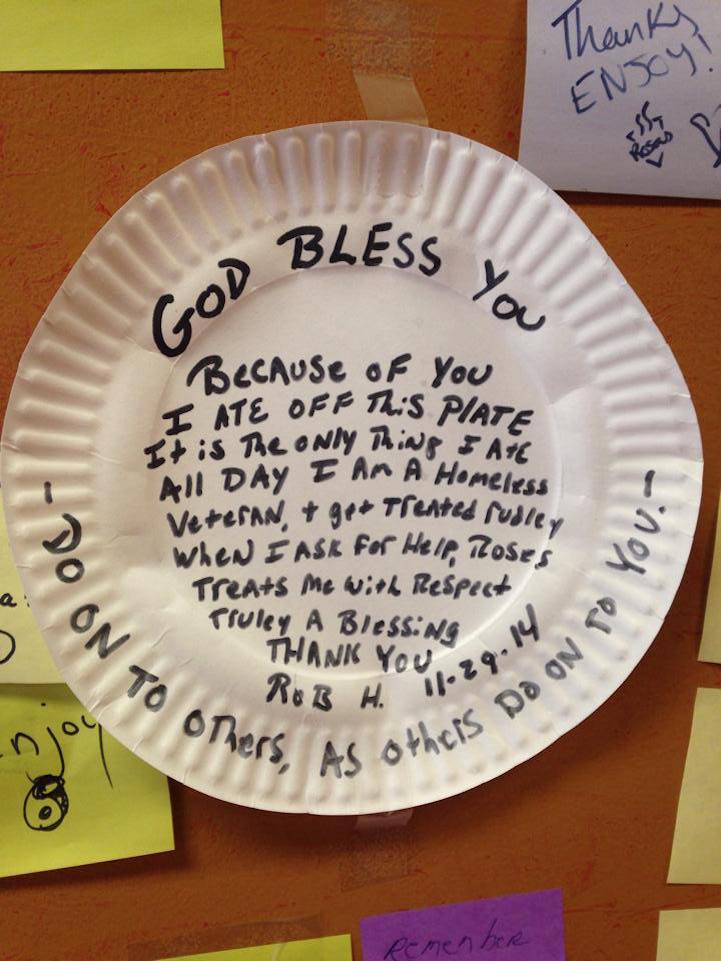 Thanks
ENJOY!
ROSA'S
GOD BLESS YOU
BECAUSE OF YOU
I ATE OFF THiS PlATE
It is The ONlY Thing I AtE
All DAY I AM A Homeless
VETERAN, + get Treated rudley
WHEN I ASK For Help, ROSES
TreAts Me with Respect
Truley A Blessing
THANK YOU
RoB H. 11-29-14
- DO ON TO OTHers, AS others DO ON TO YOU. -
enjoy
Remember